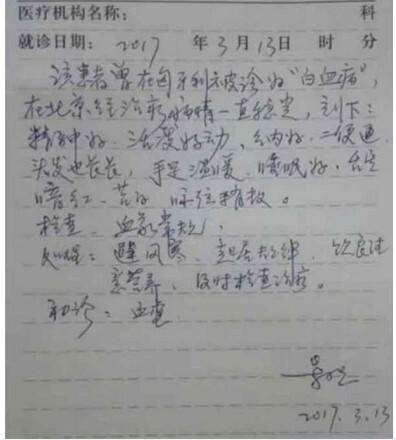 医疗机构名称： 科
就诊日期：2017 年3月13日 时 分
该患者曾在匈牙利被诊为"白血病"，
在北京经治疗病情一直稳定，刻下：
精神好、活泼好动、纳好、二便通
头发也长长，手足温暖、睡眠好，舌
暗红、苔，脉弦稍数。
检查：血象常规
处理：避风寒、起居规律、饮食
营养、及时检查治疗。
初诊：血
2017.3.13